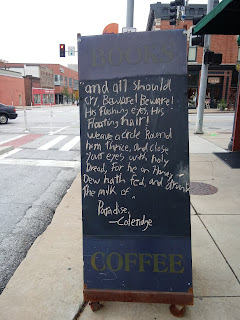 BOOKS
and all should
cry Beware! Beware!
His flashing eyes, His
Floating hair!
weave a circle Round
him thrice, and close
your eyes with holy
Dread, For he on Honey-
Dew hath fed, and drank
The milk of
Paradise.
—Coleridge
COFFEE